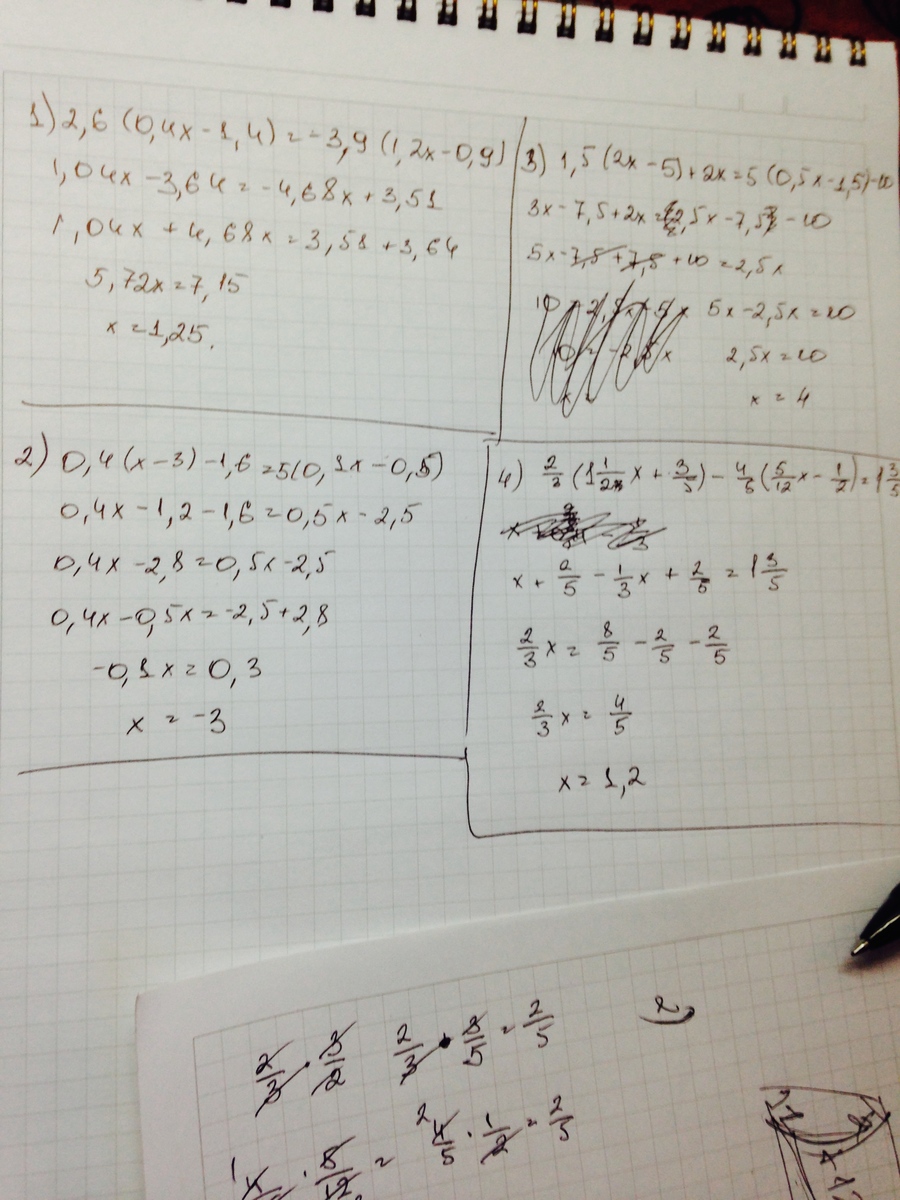 1) 2,6 (0,4x - 1,4) = -3,9 (1,2x - 0,9)
1,04x - 3,64 = -4,68x + 3,51
1,04x + 4,68x = 3,51 + 3,64
5,72x = 7,15
x = 1,25.
2) 0,4 (x - 3) - 1,6 = 5(0,1x - 0,5)
0,4x - 1,2 - 1,6 = 0,5x - 2,5
0,4x - 2,8 = 0,5x - 2,5
0,4x - 0,5x = -2,5 + 2,8
-0,1x = 0,3
x = -3
3) 1,5 (2x - 5) + 2x = 5 (0,5x - 1,5) - 10
3x - 7,5 + 2x = 2,5x - 7,5 - 10
5x - 7,5 + 7,5 + 10 = 2,5x
5x - 2,5x = 10
2,5x = 10
x = 4
4) 2/3 (1 1/2 x + 3/5) - 4/5 (5/12 x - 1/2) = 1 3/5
x + 2/5 - 1/3 x + 2/5 = 1 3/5
2/3 x = 8/5 - 2/5 - 2/5
2/3 x = 4/5
x = 1,2
2/3 · 3/2 2/3 · 3/5 = 2/5
4/5 · 1/2 = 2/5